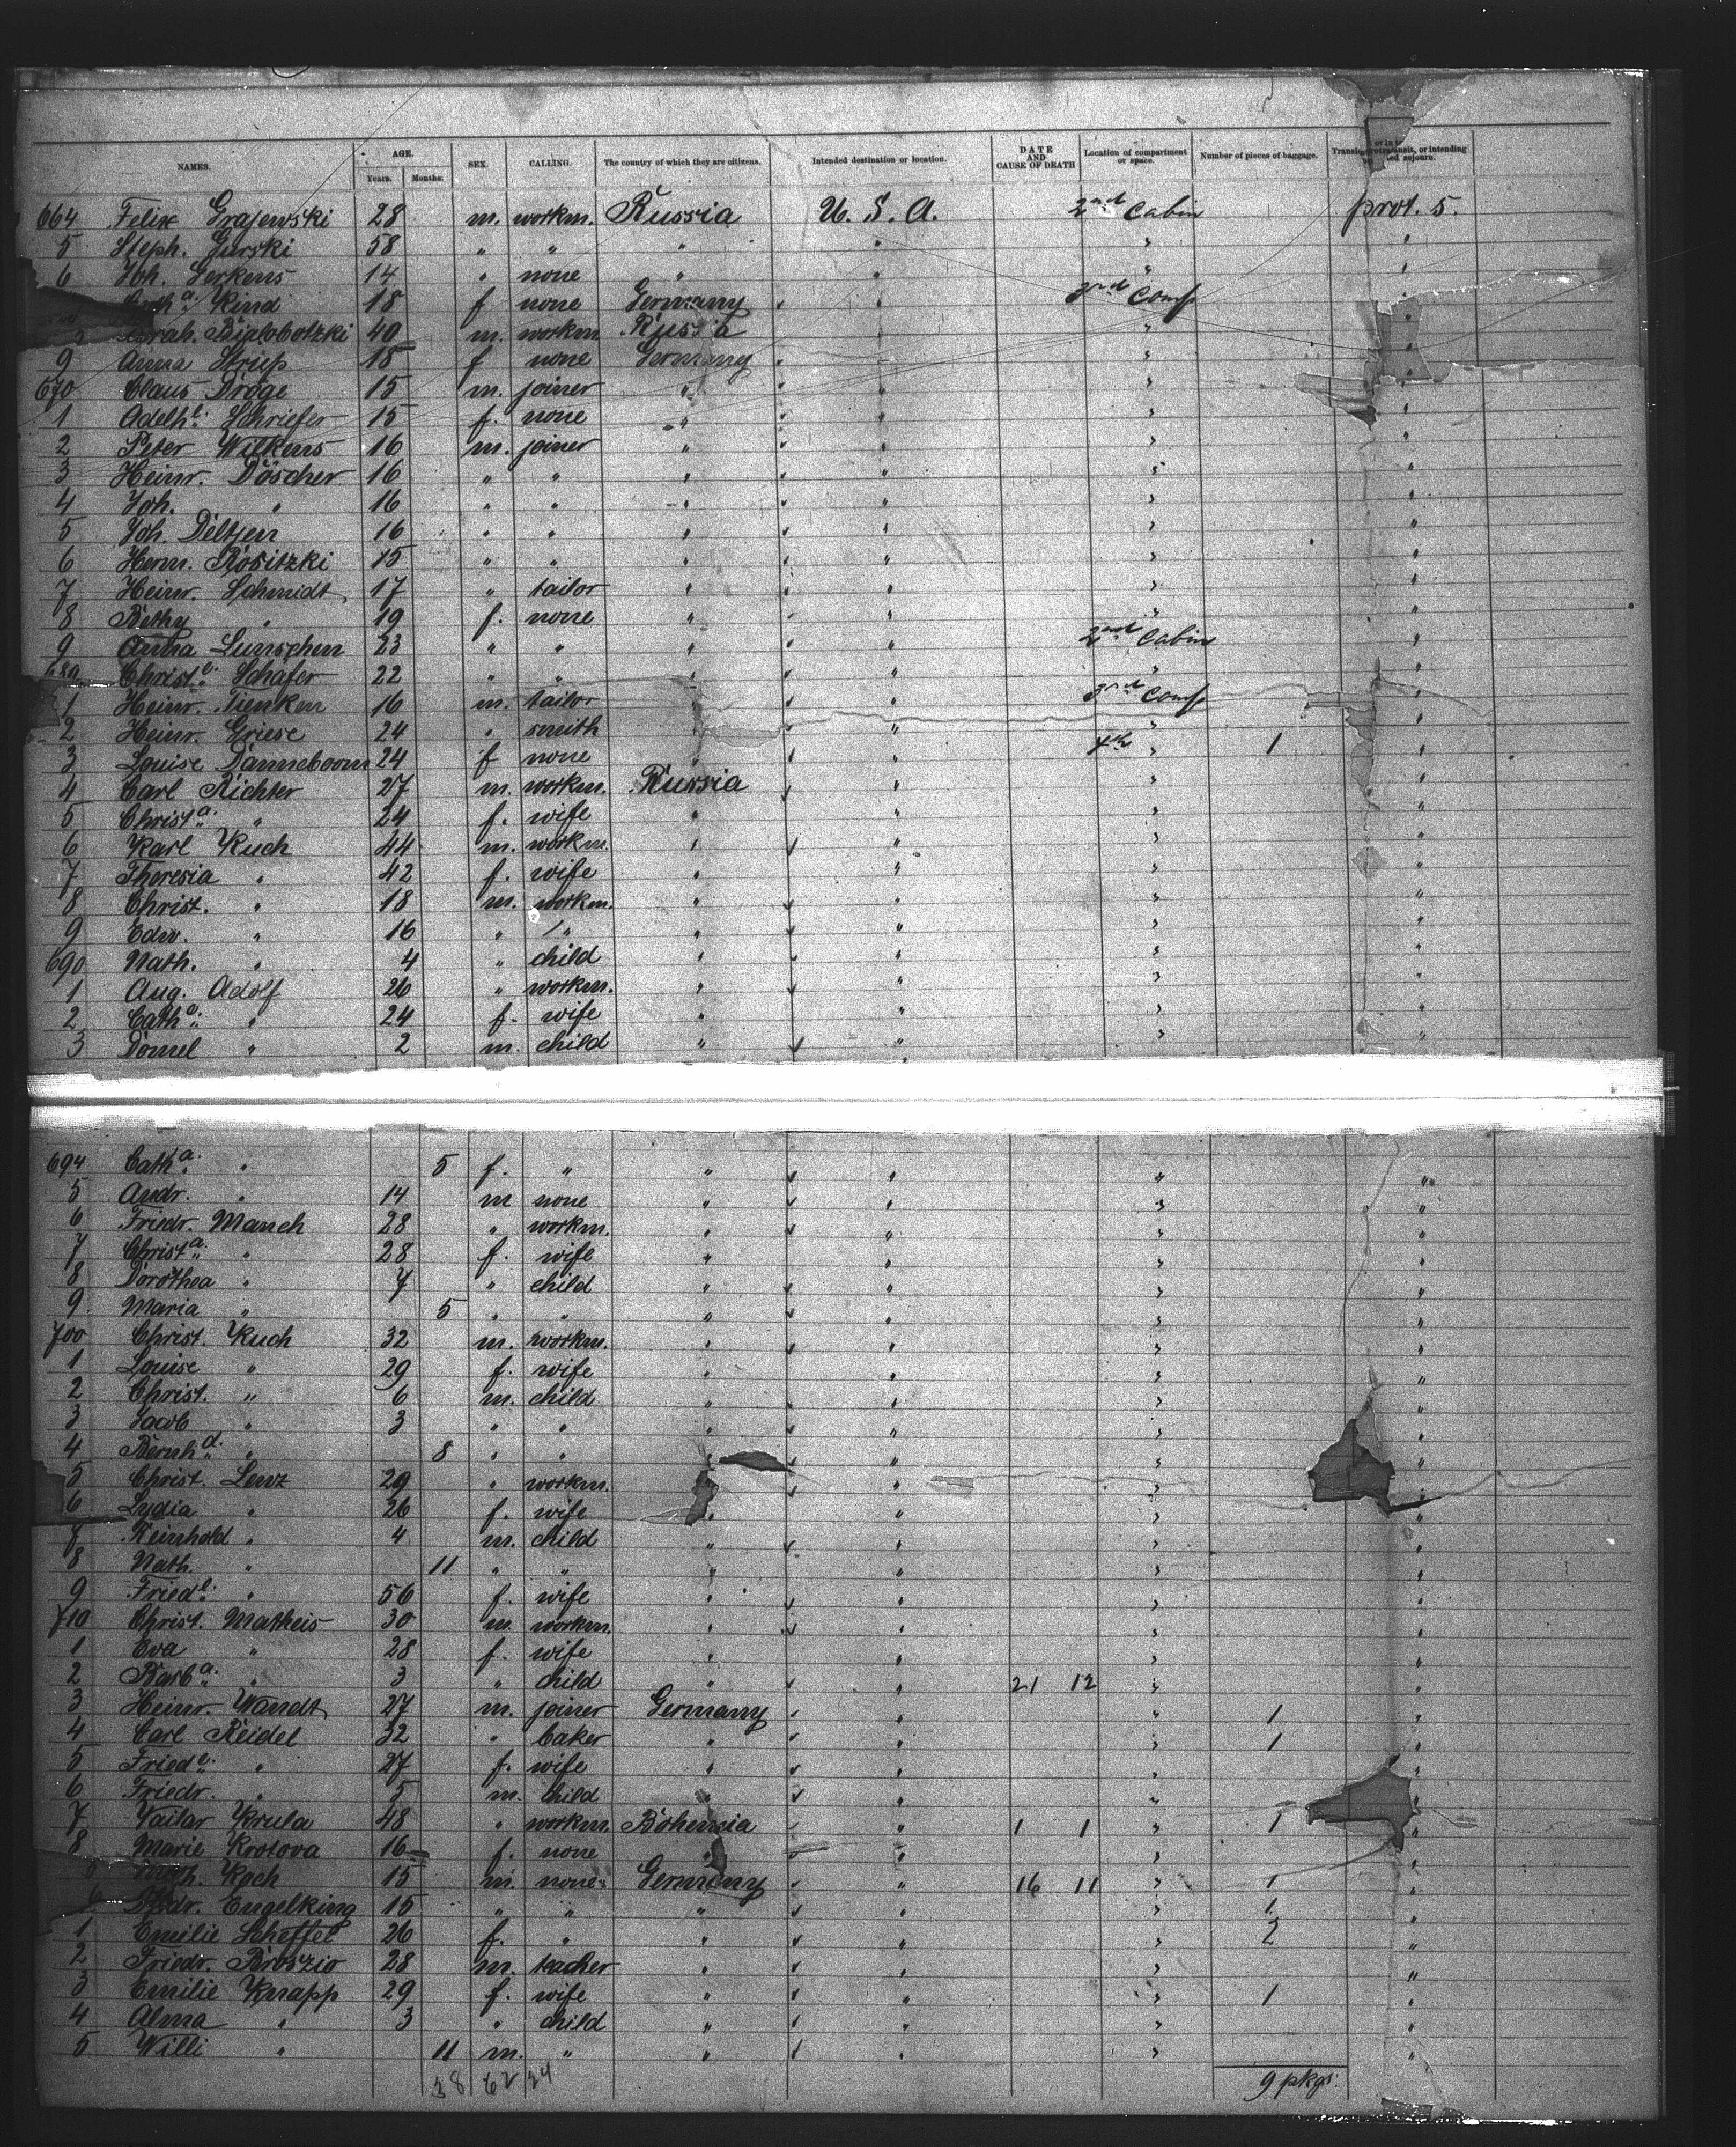 NAMES. AGE. Years. Months. SEX. CALLING. The country of which they are citizens. Intended destination or location. DATE AND CAUSE OF DEATH Location of compartment or space. Number of pieces of baggage. or intending sojourn.
664 Felix Grajewski 28 m. workm. Russia U. S. A. 2nd Cabin prot. 5.
5 Steph. Gurski 58 " " " " " "
6 Joh. Gerkens 14 " none " " " "
Kind 18 f none Germany " 3rd Comp "
40 m. workm Russia " " "
9 Anna Striep 18 f none Germany " " "
670 Claus Dröge 15 m. joiner " " " "
1 Adelh.e Schriefer 15 f. none " " " "
2 Peter Wilkens 16 m. joiner " " " "
3 Heinr. Döscher 16 " " " " " "
4 Joh. " 16 " " " " " "
5 Joh. Deltjen 16 " " " " " "
6 Herm. Rositzki 15 " " " " " "
7 Heinr. Schmidt 17 " tailor " " " "
8 Bethy " 19 f. none " " " "
9 Anna Lünschen 23 " " " " 2nd Cabin "
680 Christ.e Schäfer 22 " " " " " "
1 Heinr. Tienken 16 m. tailor " " 3rd Comp "
2 Heinr. Griese 24 " smith " " " "
3 Louise Danneboom 24 f none " " 4th " 1 "
4 Carl Richter 27 m. workm. Russia " " "
5 Christ.a " 24 f. wife " " " "
6 Karl Kuch 44 m. workm. " " " "
7 Theresia " 42 f. wife " " " "
8 Christ. " 18 m. workm. " " " "
9 Edw. " 16 " " " " " "
690 Nath. " 4 " child " " " "
1 Aug. Adolf 26 " workm. " " " "
2 Cath.e " 24 f. wife " " " "
3 Dömel " 2 m. child " " " "
694 Cath.a " 5 f. " " " " "
5 Andr. " 14 m none " " " "
6 Friedr. Manch 28 " workm. " " " "
7 Christ.a " 28 f. wife " " " "
8 Dorothea " 7 " child " " " "
9. Maria " 5 " " " " " "
700 Christ. Kuch 32 m. workm. " " " "
1 Louise " 29 f. wife " " " "
2 Christ. " 6 m. child " " " "
3 Jacob " 3 " " " " " "
4 Bernh.d " 8 " " " " " "
5 Christ. Lenz 29 " workm. " " "
6 Lydia " 26 f. wife " " " "
7 Reinhold " 4 m. child " " " "
8 Nath. " 11 " " " " " "
9 Fried.e " 56 f. wife " " " "
710 Christ. Matheis 30 m. workm. " " " "
1 Eva " 28 f. wife " " " "
2 Barb.a " 3 " child " " 21 12 " "
3 Heinr. Wandt 27 m. joiner Germany " " 1 "
4 Carl Reidel 32 " baker " " " 1 "
5 Fried.e " 27 f. wife " " " "
6 Friedr. " 5 m. child " " " "
7 Krula 48 " workm. Bohemia " 1 1 " 1 "
8 Marie Krotova 16 f. none " " " "
Koch 15 m. none Germany " 16 11 " 1 "
Engelking 15 " " " " " 1 "
1 Emilie Scheffel 26 f. " " " " 2 "
2 Friedr. Broszio 28 m. teacher " " " "
3 Emilie Knapp 29 f. wife " " " 1 "
4 Alma " 3 " child " " " "
5 Willi " 11 m. " " " " "
38 62 24 9 pkgs.